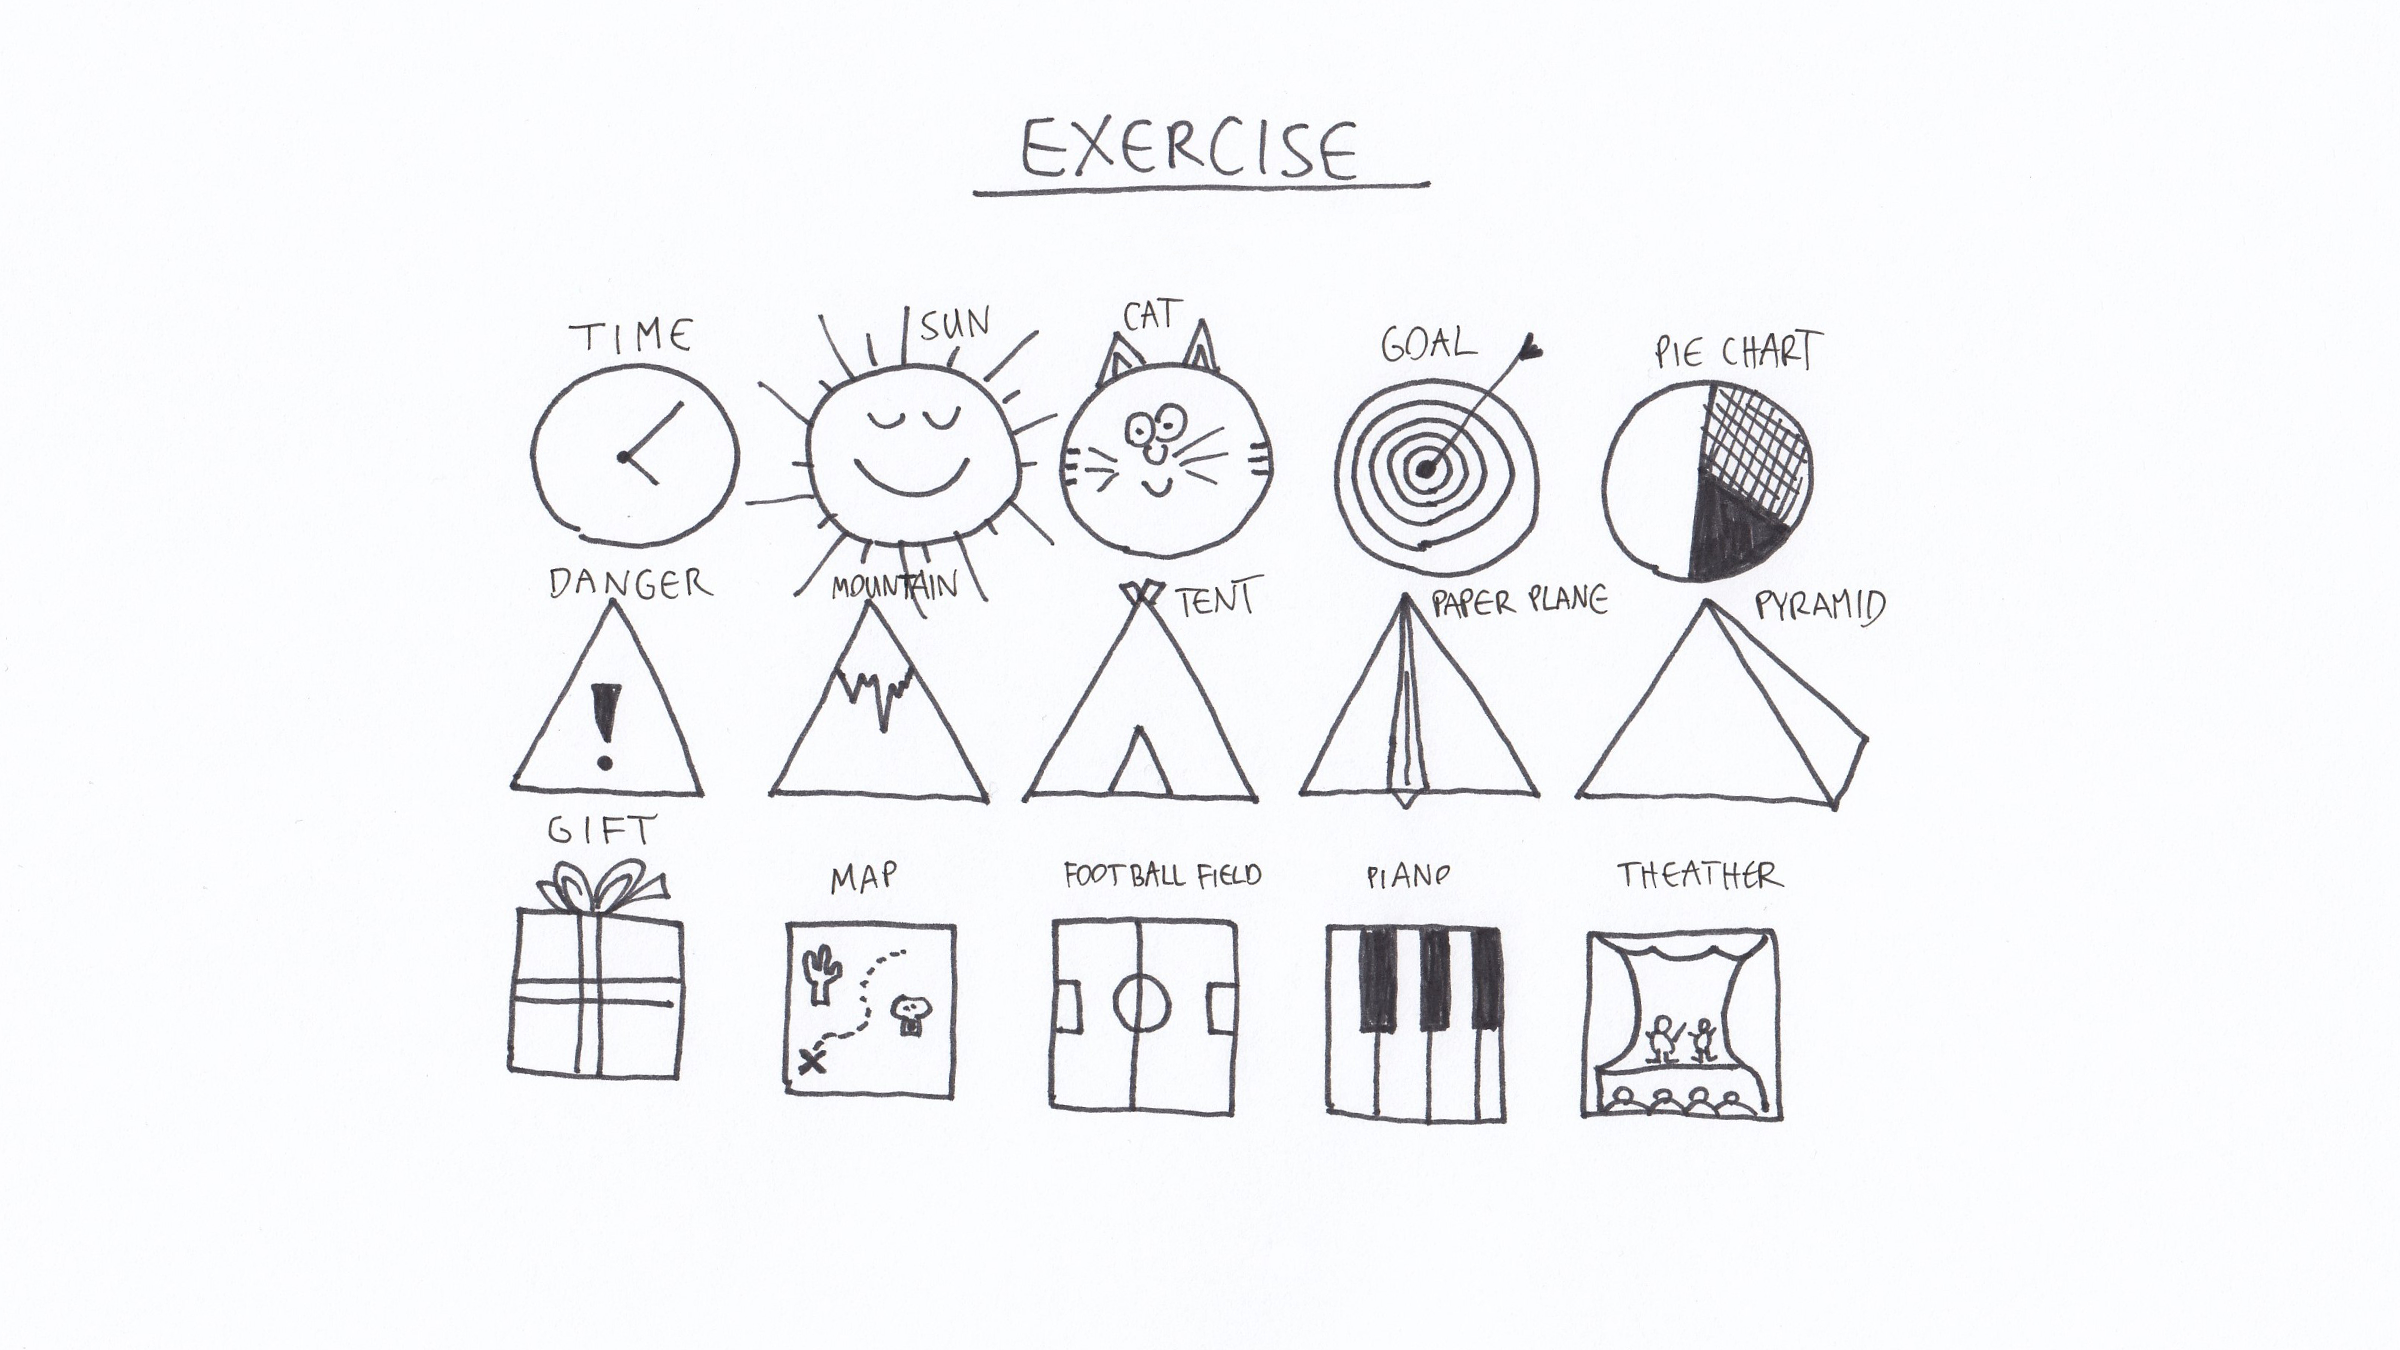 EXERCISE
TIME
SUN
CAT
GOAL
PIE CHART
DANGER
MOUNTAIN
TENT
PAPER PLANE
PYRAMID
GIFT
MAP
FOOTBALL FIELD
PIANO
THEATHER